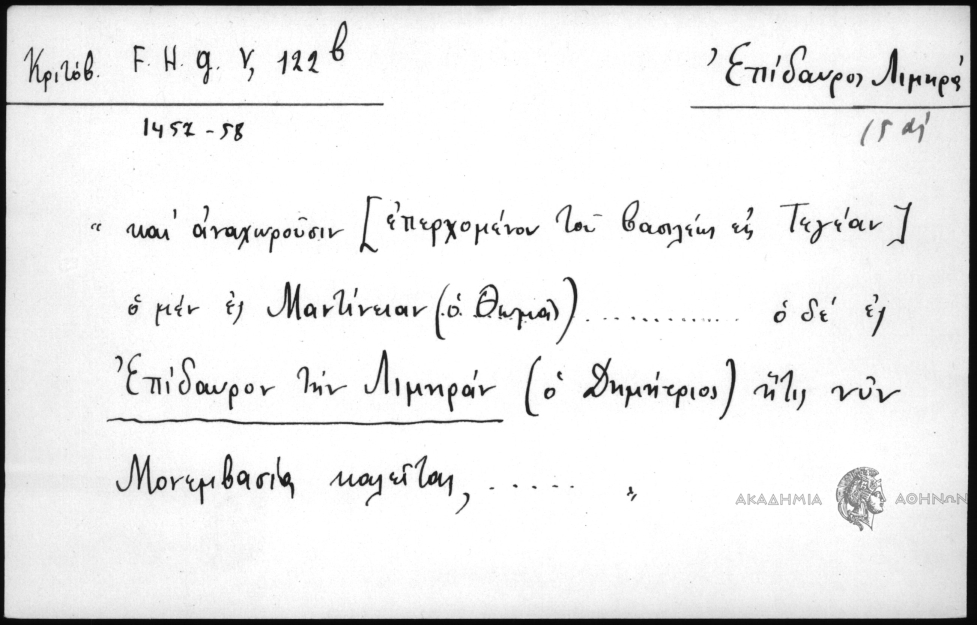 Κριτόβ. F. H. g. V, 122 β
Ἐπίδαυρος Λιμηρά
1457-58
(5 αἰ
“ καὶ ἀναχωροῦσιν [ἐπερχομένου τοῦ βασιλέως εἰς Τεγέαν]
ὁ μέν ἐς Μαντίνειαν (ὁ Θωμᾶς) ............. ὁ δέ ἐς
Ἐπίδαυρον τὴν Λιμηράν (ὁ Δημήτριος) ἥτις νῦν
Μονεμβασία καλεῖται, ...... „
ΑΚΑΔΗΜΙΑ ΑΘΗΝΩΝ